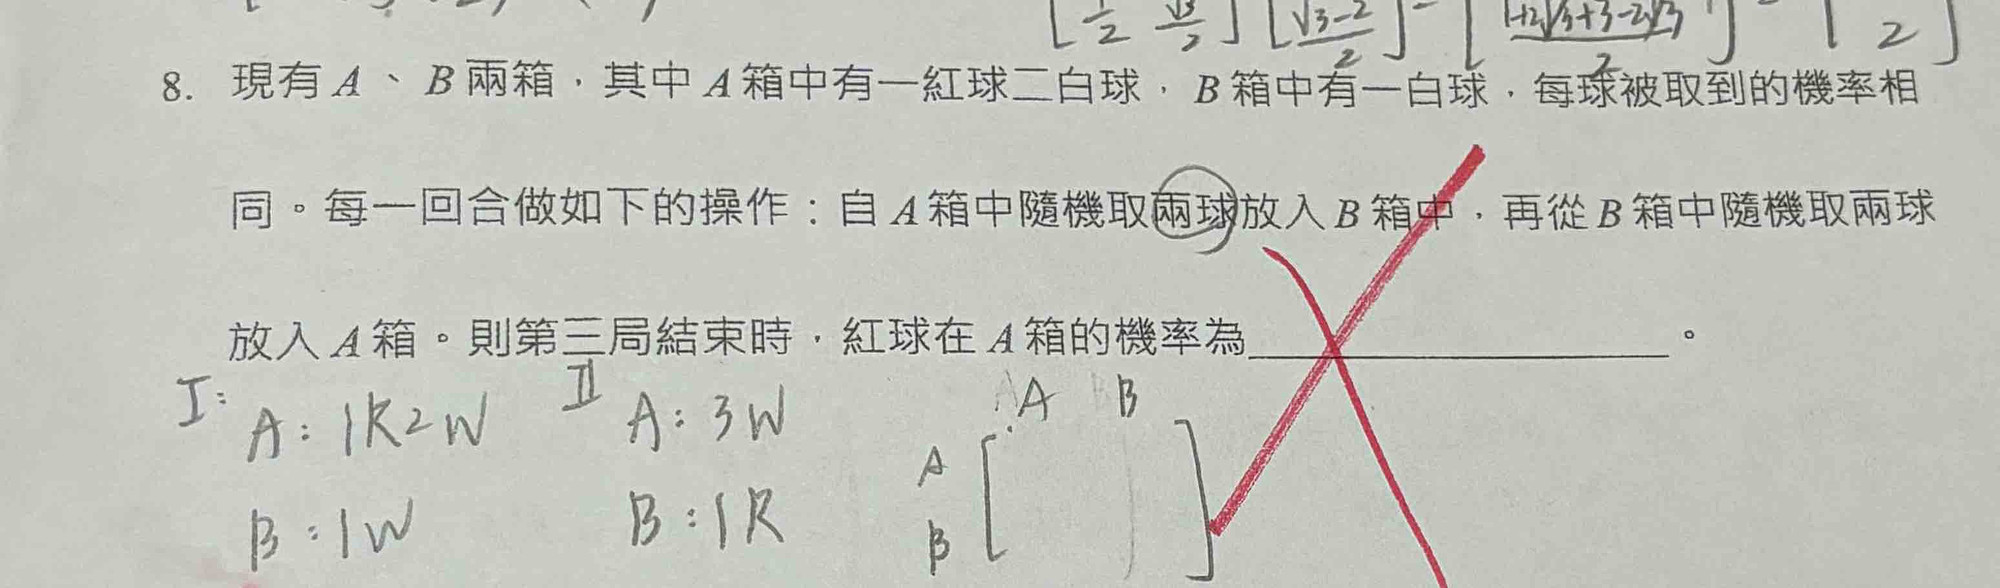 [1/2 √3/2] [√3-2/2] = [ ] = [ 2]
8. 現有 A、B 兩箱，其中 A 箱中有一紅球二白球，B 箱中有一白球，每球被取到的機率相
同。每一回合做如下的操作：自 A 箱中隨機取兩球放入 B 箱中，再從 B 箱中隨機取兩球
放入 A 箱。則第三局結束時，紅球在 A 箱的機率為＿＿＿＿＿＿。
I: II
A: 1R2W A: 3W A B
A
B: 1W B: 1R B